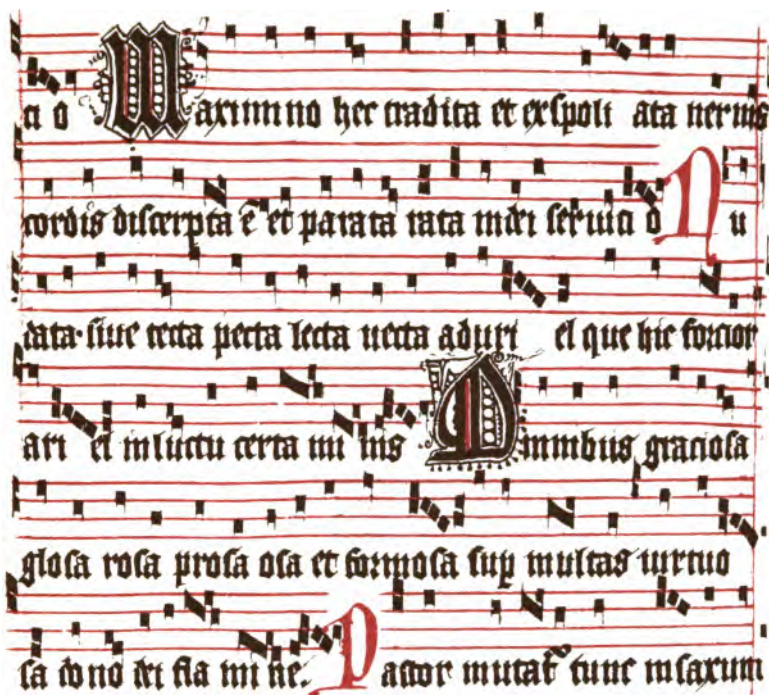 ci o Maximino hec tradita et exspoli ata neruis
cordis discerpta ē et parata rata in dei seruici o Nu
data siue tecta pecta lecta uecta aduri el que hic forcior
ari el in luctu certa mi nis Omnibus graciosa
glosa rosa prosa osa et formosa sup multas uirtuo
sa do no dei fla mi ne. Pastor mutat᷑ tunc in saxum